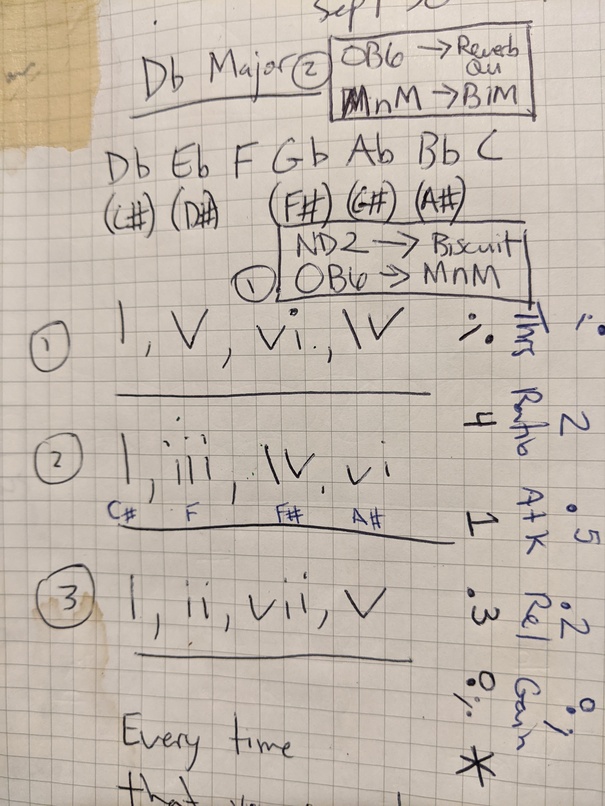 Sept 30
Db Major
② OB6 → Reverb
Qu
MnM → BIM
Db Eb F Gb Ab Bb C
(C#) (D#) (F#) (G#) (A#)
ND2 → Biscuit
① OB6 → MnM
① I, V, vi, IV
② I, iii, IV, vi
C# F F# A#
③ I, ii, vii, V
Every time
that
Thrs Ratio Atk Rel Gain
2 .5 .2 0
4 1 .3 0 *